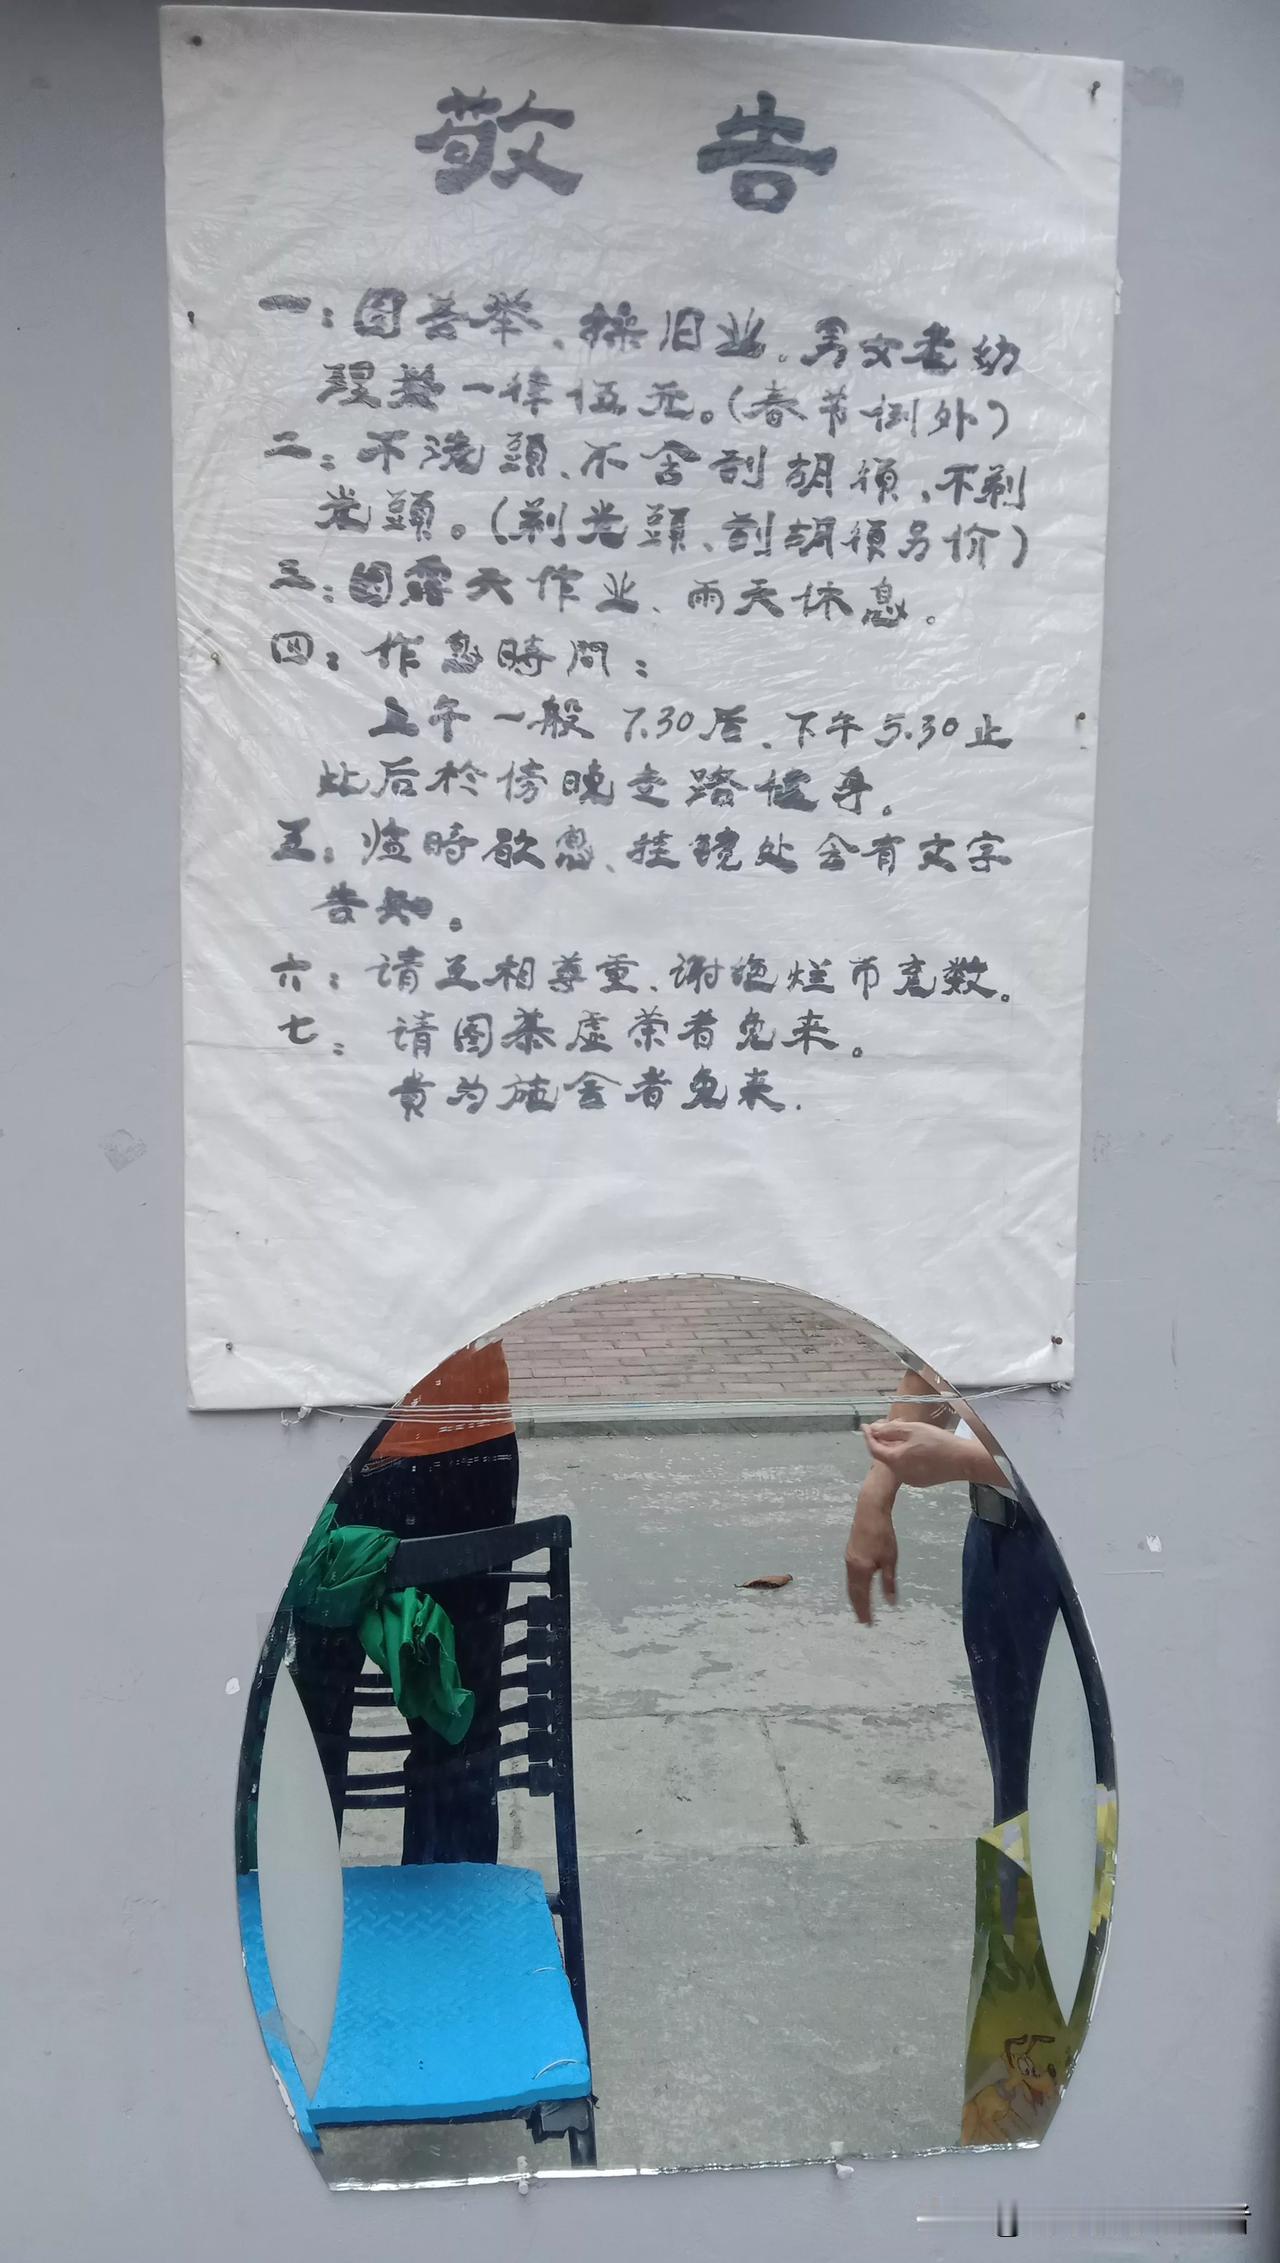 敬告
一：图善举、操旧业。男女老幼
理发一律伍元。（春节例外）
二：不洗頭、不含刮胡须、不剃
光頭。（剃光頭、刮胡须另价）
三：因露天作业、雨天休息。
四：作息時間：
上午一般7.30后、下午5.30止
此后於傍晚走路健身。
五：临時歇息、挂镜处会有文字
告知。
六：请互相尊重、谢绝烂币充数。
七：请图慕虚荣者免来。
贵为施舍者免来.